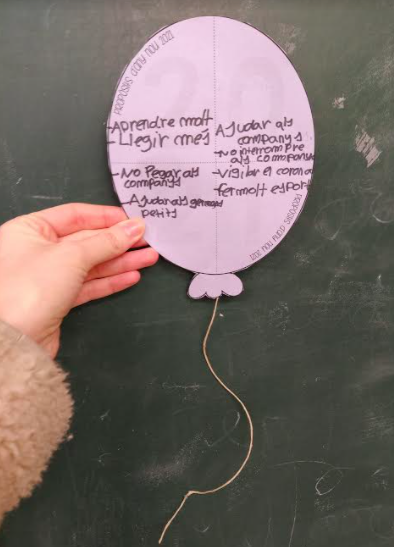 PROPÒSITS D'ANY NOU 2021
-Aprendre molt
-Llegir més
-No Pegar als
companys
-Ajudar als germans
petits
Ajudar als
companys
-No interrompre
als companys
-Vigilar el corona
fer molt esport
PROPÒSITS D'ANY NOU 2021